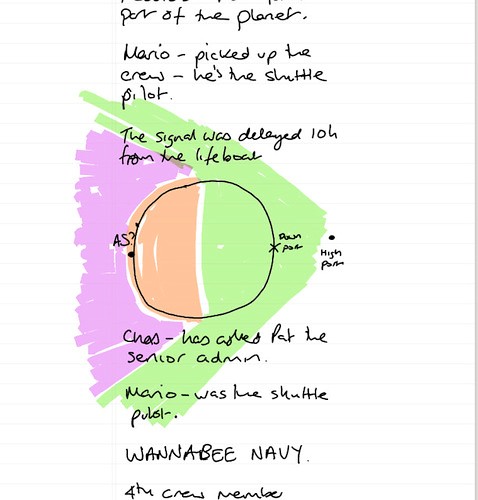 part of the planet.
Mario - picked up the
crew - he's the shuttle
pilot.
The signal was delayed 10h
from the lifeboat
AS?
Down
port
High
port
Chas - has asked Pat the
senior admin.
Mario - was the shuttle
pilot.
WANNABEE NAVY.
4th crew member